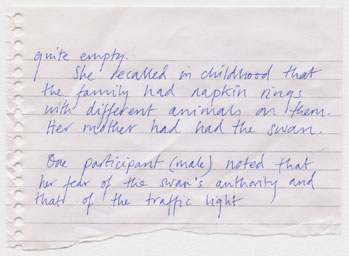 quite empty.
She recalled in childhood that
the family had napkin rings
with different animals on them.
Her mother had had the swan.
One participant (male) noted that
her fear of the swan's authority and
that of the traffic light